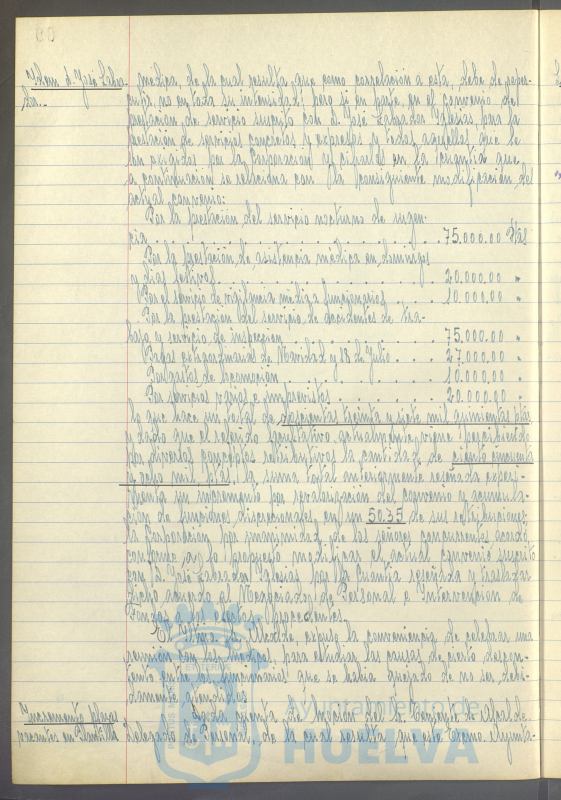 Idem d. José Labra-
dor.-
médica, de la cual resulta que como correlación a esta, debe de reper-
cutir, no en toda su intensidad, pero si en parte, en el convenio de
prestación de servicio suscrito con d. José Labrador Iglesias, para la
prestación de servicios concretos y expresos y todos aquellos que le
son exigidos por la Corporación y cifrados en la cuantía que
a continuación se relaciona con la consiguiente modificación del
actual convenio:
Por la prestación del servicio nocturno de urgen-
cia . . . . 75.000.00 Ptas
Por la prestación de asistencia médica en domingos
y dias festivos . . . . 20.000.00 "
Por el servicio de vigilancia médica funcionarios . . . . 10.000.00 "
Por la prestación del servicio de accidentes de tra-
bajo y servicio de inspección . . . . 75.000.00 "
Pagas extraordinarias de Navidad y 18 de Julio . . . . 27.000.00 "
Por gastos de locomoción . . . . 10.000.00 "
Por servicios varios e imprevistos . . . . 20.000.00 "
lo que hace un total de doscientas treinta y siete mil quinientas ptas
y dado que el referido facultativo actualmente viene percibiendo
por diversos conceptos retributivos la cantidad de ciento cincuenta
y ocho mil ptas la suma total anteriormente reseñada experi-
menta un incremento por revalorización del convenio y acumula-
ción de funciones discrecionales en un 50.35 de sus retribuciones.
La Corporación por unanimidad de los señores concurrentes acordó
conforme a lo propuesto modificar el actual convenio suscrito
con d. José Labrador Iglesias, por la cuantía reseñada y trasladar
dicho acuerdo al Negociado de Personal e Intervención de
Fondos a los efectos procedentes.
El Iltmo. Sr. Alcalde, expuso la conveniencia de celebrar una
reunión con los médicos, para estudiar las causas de cierto descon-
tento entre los funcionarios que se habia quejado de no ser debi-
damente atendidos.
Incremento plazas
vacantes en Plantilla
Dada cuenta de moción del Sr. Teniente de Alcalde
Delegado de Personal, de la cual resulta que este Excmo. Ayunta-
Ayuntamiento de
HUELVA